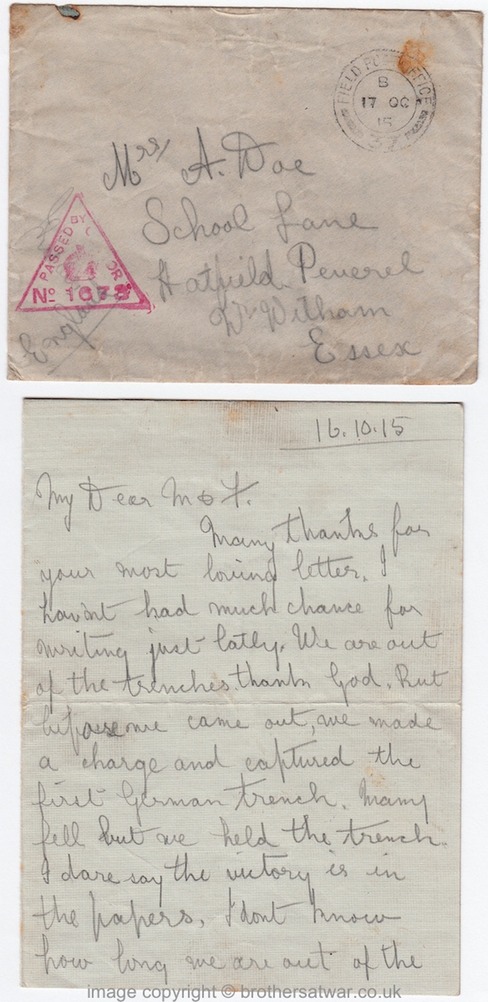 FIELD POST OFFICE
B
17 OC
15
Mrs A. Doe
School Lane
Hatfield Peverel
Nr Witham
Essex
England
PASSED BY CENSOR
No 1673
16.10.15
My Dear M & F.
Many thanks for
your most loving letter. I
havnt had much chance for
writing just latly. We are out
of the trenches thank God. But
before we came out, we made
a charge and captured the
first German trench. Many
fell but we held the trench.
I dare say the victory is in
the papers. I dont know
how long we are out of the
image copyright © brothersatwar.co.uk